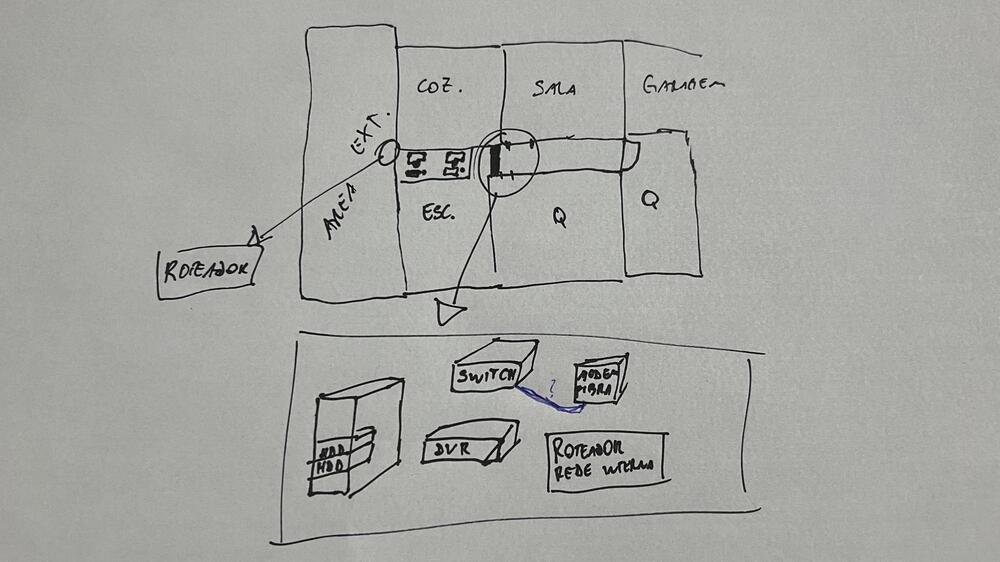 COZ.
SALA
GARAGEM
EXT.
ÁREA
ESC.
Q
Q
ROTEADOR
SWITCH
?
MODEM
FIBRA
HDD
HDD
DVR
ROTEADOR
REDE INTERNA